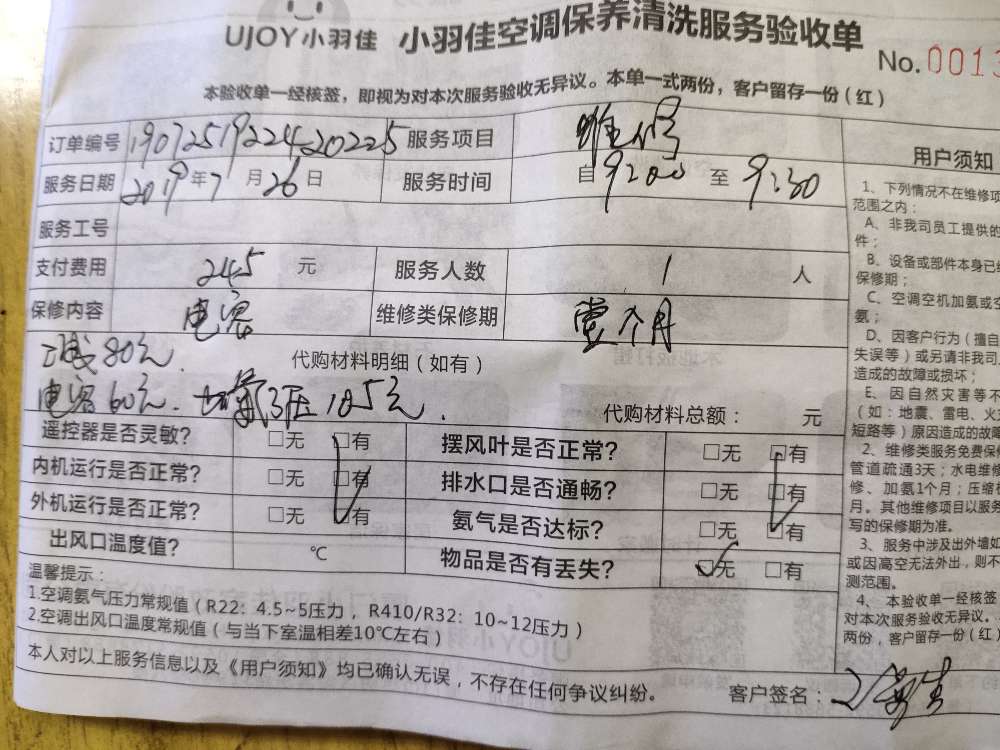 UJOY小羽佳 小羽佳空调保养清洗服务验收单
No.0013
本验收单一经核签，即视为对本次服务验收无异议。本单一式两份，客户留存一份（红）
订单编号 19072519224420225 服务项目 维修
服务日期 2019年7月26日 服务时间 自9:00至9:30
服务工号
支付费用 245 元 服务人数 1 人
保修内容 电容 维修类保修期 壹个月
减80元 代购材料明细（如有）
电容60元. 加氟3压185元. 代购材料总额： 元
遥控器是否灵敏? □无 □有 摆风叶是否正常? □无 □有
内机运行是否正常? □无 □有 排水口是否通畅? □无 □有
外机运行是否正常? □无 □有 氨气是否达标? □无 □有
出风口温度值? ℃ 物品是否有丢失? □无 □有
温馨提示：
1.空调氨气压力常规值（R22：4.5~5压力，R410/R32：10~12压力）
2.空调出风口温度常规值（与当下室温相差10℃左右）
本人对以上服务信息以及《用户须知》均已确认无误，不存在任何争议纠纷。 客户签名：
用户须知
1、下列情况不在维修项
范围之内：
A、非我司员工提供的
件；
B、设备或部件本身已经
保修期；
C、空调空机加氨或空
氨；
D、因客户行为（擅自
失误等）或另请非我司
造成的故障或损坏；
E、因自然灾害等不
（如：地震、雷电、火
短路等）原因造成的故障
2、维修类服务免费保修
管道疏通3天；水电维修
修、加氨1个月；压缩机
月。其他维修项目以服务
写的保修期为准。
3、服务中涉及出外墙如
或因高空无法外出，则不
测范围。
4、本验收单一经核签
对本次服务验收无异议。
两份，客户留存一份（红）